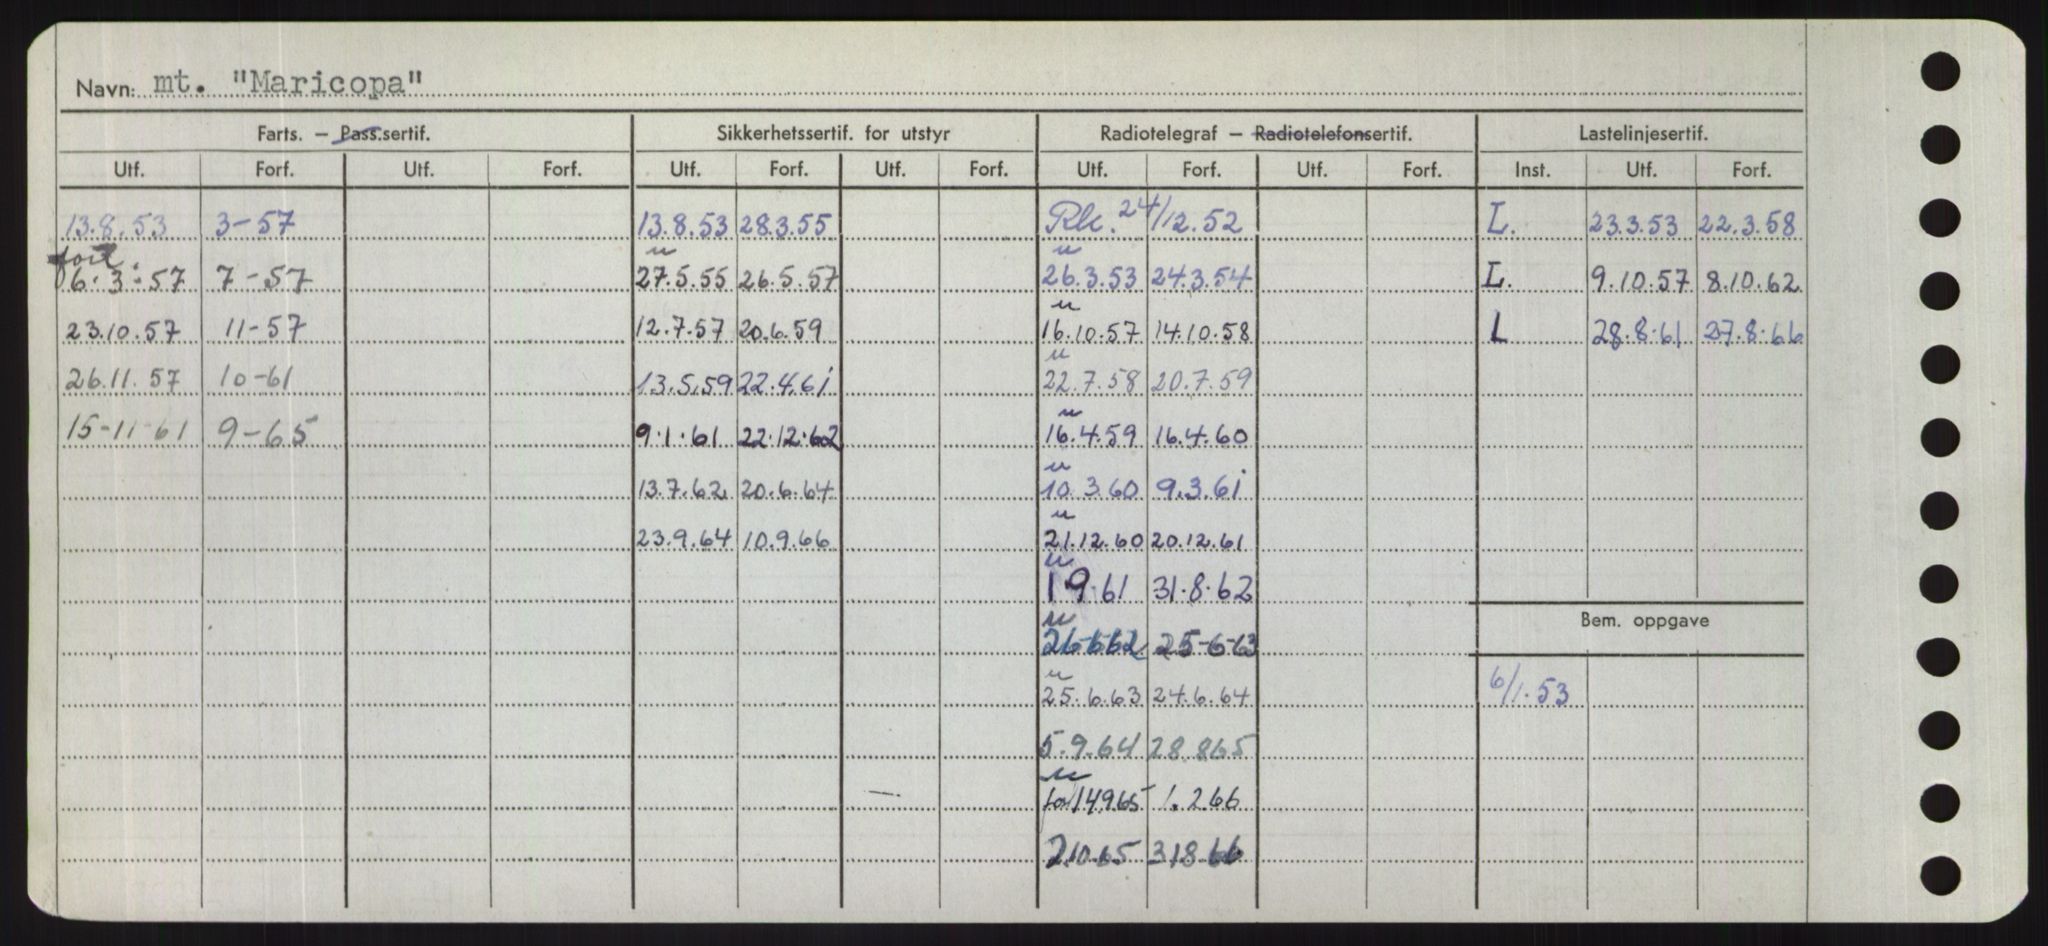 Navn: mt. "Maricopa"
Farts. – Pass.sertif. Sikkerhetssertif. for utstyr Radiotelegraf – Radiotelefonsertif. Lastelinjesertif.
Utf. Forf. Utf. Forf. Utf. Forf. Utf. Forf. Utf. Forf. Utf. Forf. Inst. Utf. Forf.
13.8.53 3-57 13.8.53 28.3.55 Rk. 24/12.52 L. 23.3.53 22.3.58
u u
6.3.57 7-57 27.5.55 26.5.57 26.3.53 24.3.54 L. 9.10.57 8.10.62
u
23.10.57 11-57 12.7.57 20.6.59 16.10.57 14.10.58 L 28.8.61 27.8.66
u
26.11.57 10-61 13.5.59 22.4.61 22.7.58 20.7.59
u
15-11-61 9-65 9.1.61 22.12.62 16.4.59 16.4.60
u
13.7.62 20.6.64 10.3.60 9.3.61
u
23.9.64 10.9.66 21.12.60 20.12.61
u
1 9.61 31.8.62
u
Bem. oppgave
26-6-62 25-6-63
u
25.6.63 24.6.64 6/1.53
5.9.64 28.865
u
14965 1.266
21065 31866